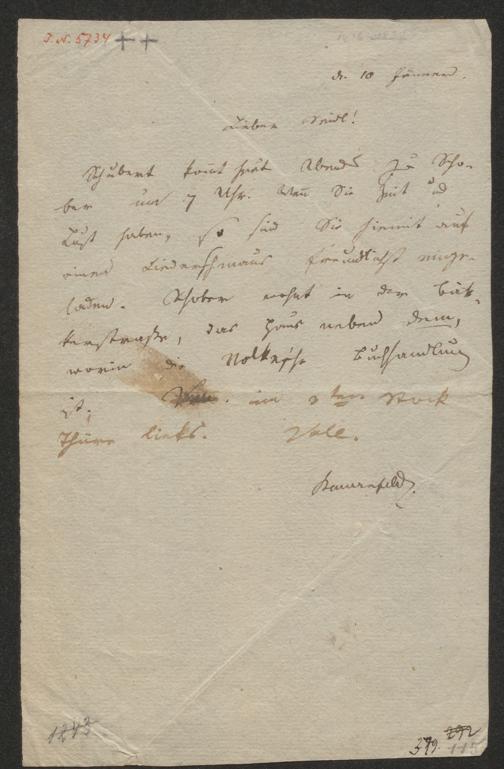 I. N. 5734 ++
d. 10 Jänner.
Lieber Seidl!
Schubert kommt heut Abends zu Scho-
ber um 7 Uhr. Weñ Sie Zeit und
Lust haben, so sind Sie hiemit auf
einen Liederschmaus freundlichst einge-
laden. Schober wohnt in der Bäk-
kerstraße, das Haus neben dem,
worin die Buchhandlung
ist, im 2ten Stock
Thüre links. Vale.
Bauernfeld
1243
379. 292
115